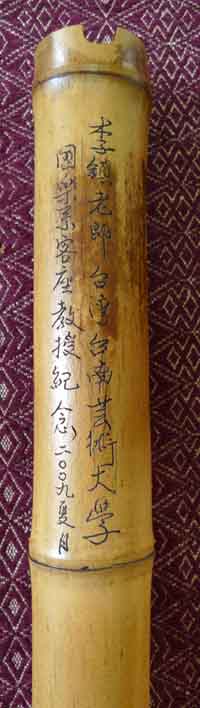 李鎮老師台湾台南芸術大學
国楽系客座教授紀念二〇〇九夏月